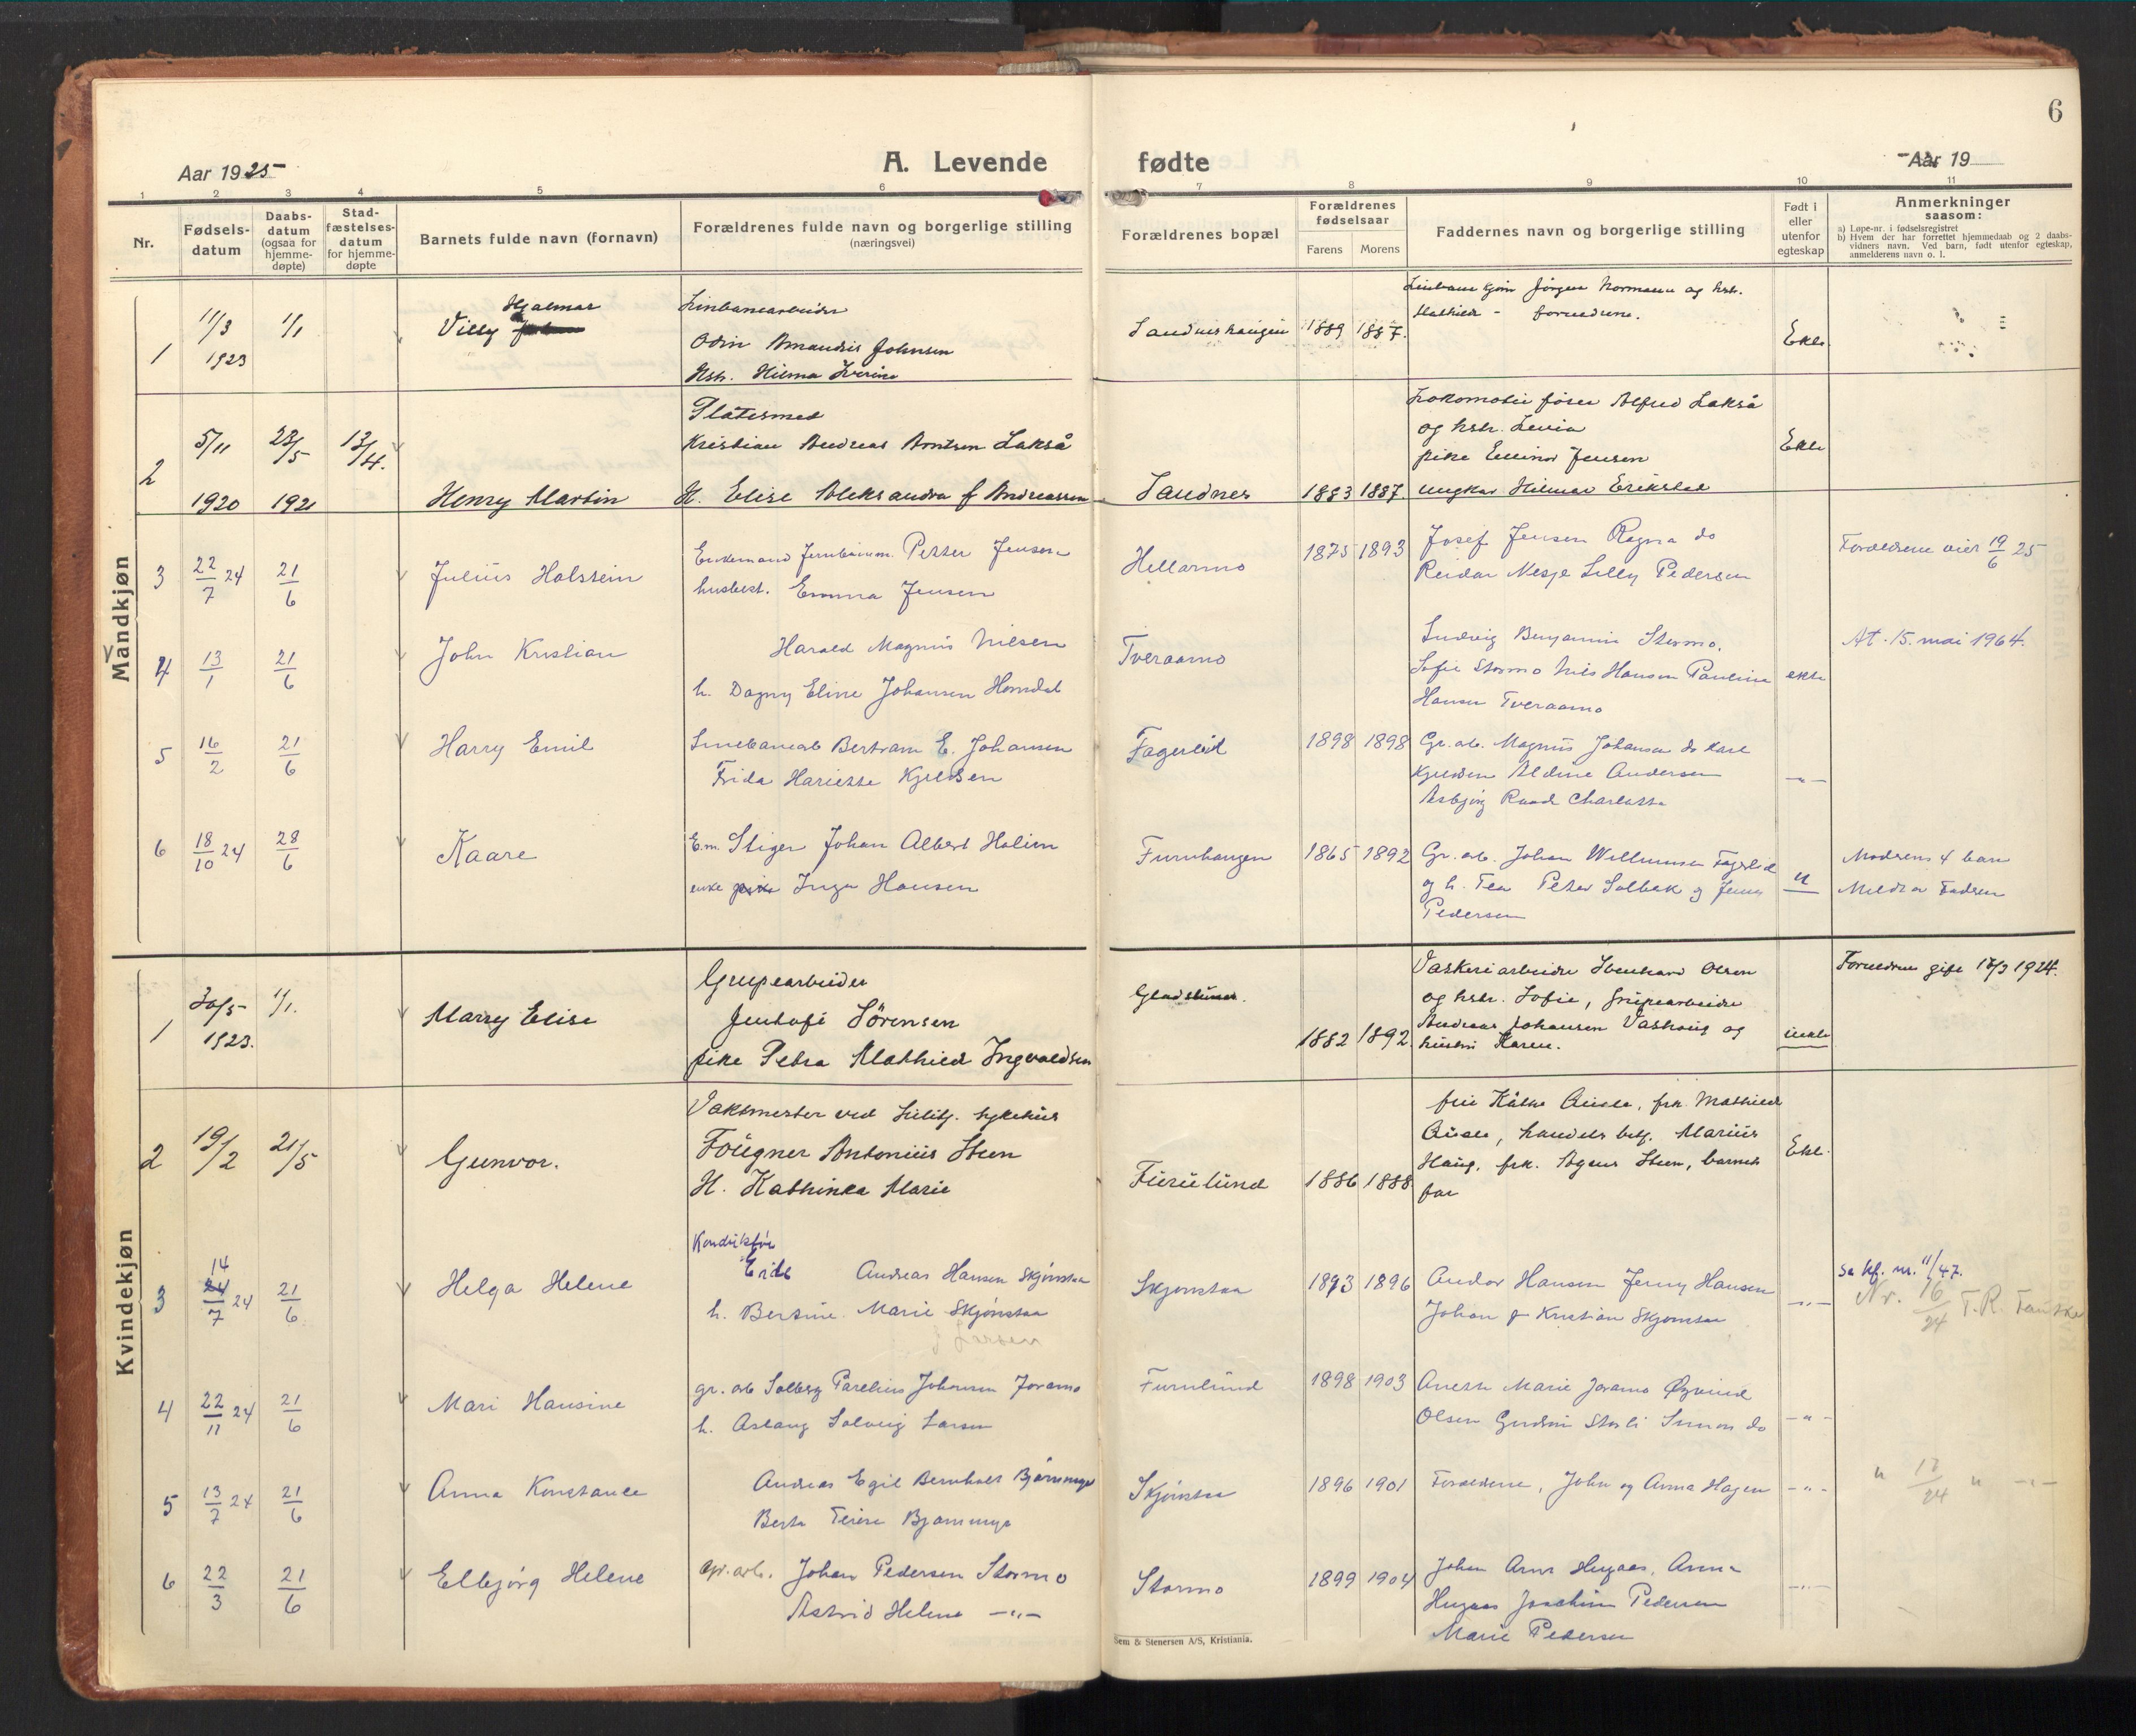 6
Aar 1925
A. Levende
fødte
Aar 19
1 2 3 4 5 6 7 8 9 10 11
Nr.
Fødsels-
datum
Daabs-
datum
(ogsaa for
hjemme-
døpte)
Stad-
fæstelses-
datum
for hjemme-
døpte
Barnets fulde navn (fornavn)
Forældrenes fulde navn og borgerlige stilling
(næringsvei)
Forældrenes bopæl
Forældrenes
fødselsaar
Farens Morens
Faddernes navn og borgerlige stilling
Født i
eller
utenfor
egteskap
Anmerkninger
saasom:
a) Løpe-nr. i fødselsregistret
b) Hvem der har forrettet hjemmedaab og 2 daabs-
vidners navn. Ved barn, født utenfor egteskap,
anmelderens navn o. l.
Mandkjøn
1 11/3 1923 11/1
Hjalmar
Villy
Linbanearbeider
Odin Amandus Johnsen
Hstr. Hilma
Sandneshaugen 1889 1887.
Jørgen Normann og hstr.
Mathild - forældrene.
Ekte
2 5/11 1920 23/5 1921 13/4.
Henry Martin
Platesmed
Kristian Andreas Arntsen Lakså
H. Elise Aleksandra f Andreassen
Sandnes 1883 1887.
Lokomotiv fører Alfred Lakså
og hstr. Levia
pike Ellinor Jensen
ungkar Hilmar Erikstad
Ekte
3 22/7 24 21/6
Julius Holstein
Enkemand Jernbanem. Petter Jensen
husbest. Emma Jensen
Hellarmo 1875 1893
Josef Jensen Ragna do
Reidar Nesje Lilly Pedersen
Forældrene viet 19/6 25
4 13/1 21/6
John Kristian
Harald Magnus Nilsen
h. Dagny Eline Johansen Homdal
Tveraamo
Ludvig Benjamin Stormo,
Sofie Stormo Nils Hansen Pauline
Hansen Tveraamo
ekte
At. 15. mai 1964.
5 16/2 21/6
Harry Emil
Bertram E. Johansen
Frida Hariette Kjeldsen
Fagerlid 1898 1898
Gr. arb. Magnus Johansen do Karl
Kjeldsen Aldine Andersen
Asbjørg Raad Charlotte
-"-
6 18/10 24 28/6
Kaare
E.m. Stiger Johan Albert Holien
enke Inga Hansen
Furuhaugen 1865 1892
Gr. arb. Johan Willumsen Fagerlid
og h. Tea Peter Solbak og Jenny
Pedersen
u
Modrens 4 barn
Meldt av Fadren
Kvindekjøn
1 30/5 1923. 11/1.
Marry Elise
Grupearbeider
Jentoft Sörensen
pike Petra Mathild Ingvaldsen
1882 1892.
Vaskeriarbeider Evenhard Olsen
og hstr. Sofie, grupearbeider
Andreas Johansen Vashaug og
hustru Karen.
uekte
Forældrene gift 18/3 1924.
2 19/2 21/5
Gunvor.
Vaktmester ved Sulitj. sykehus
Fougner Antonius Steen
H. Kathinka Marie
Furulund 1886 1888
frk. Mathild
handels betj. Marius
Haug, frk. Agnes Steen, barnets
far
Ekte.
3 14 24/7 24 21/6
Helga Helene
Konduktør
Andreas Hansen Skjønstaa
h. Bertine Marie Skjønstaa
f Larsen
Skjønstaa 1893 1896
Andor Hansen Jenny Hansen
Johan & Kristian Skjønstaa
-"-
Se kf. nr. 11/47.
Nr. 16/24 T.R. Fauske
4 22/11 24 21/6
Mari Hansine
gr. arb Solberg Parelius Johansen Joramo
h. Aslaug Solveig Larsen
Furulund 1898 1903
Anette Marie Joramo Øyvind
Olsen Gudrun Storli Simon do
-"-
5 13/7 24 21/6
Anna Konstance
Andreas Egil Bernholt Bjørnmyr
Berta Terese Bjørnmyr
Skjønstaa 1896 1901
Forældrene, John og Anna Hagen
-"-
" 17/24 " -"-
6 22/3 21/6
Ellbjörg Helene
Gr. arb. Johan Pedersen Stormo
Astrid Helene -"-
Stormo 1899 1904
Johan Arnt Hugaas, Anna
Hugaas Joachim Pedersen
Marie Pedersen
-"-
Sem & Stenersen A/S, Kristiania.